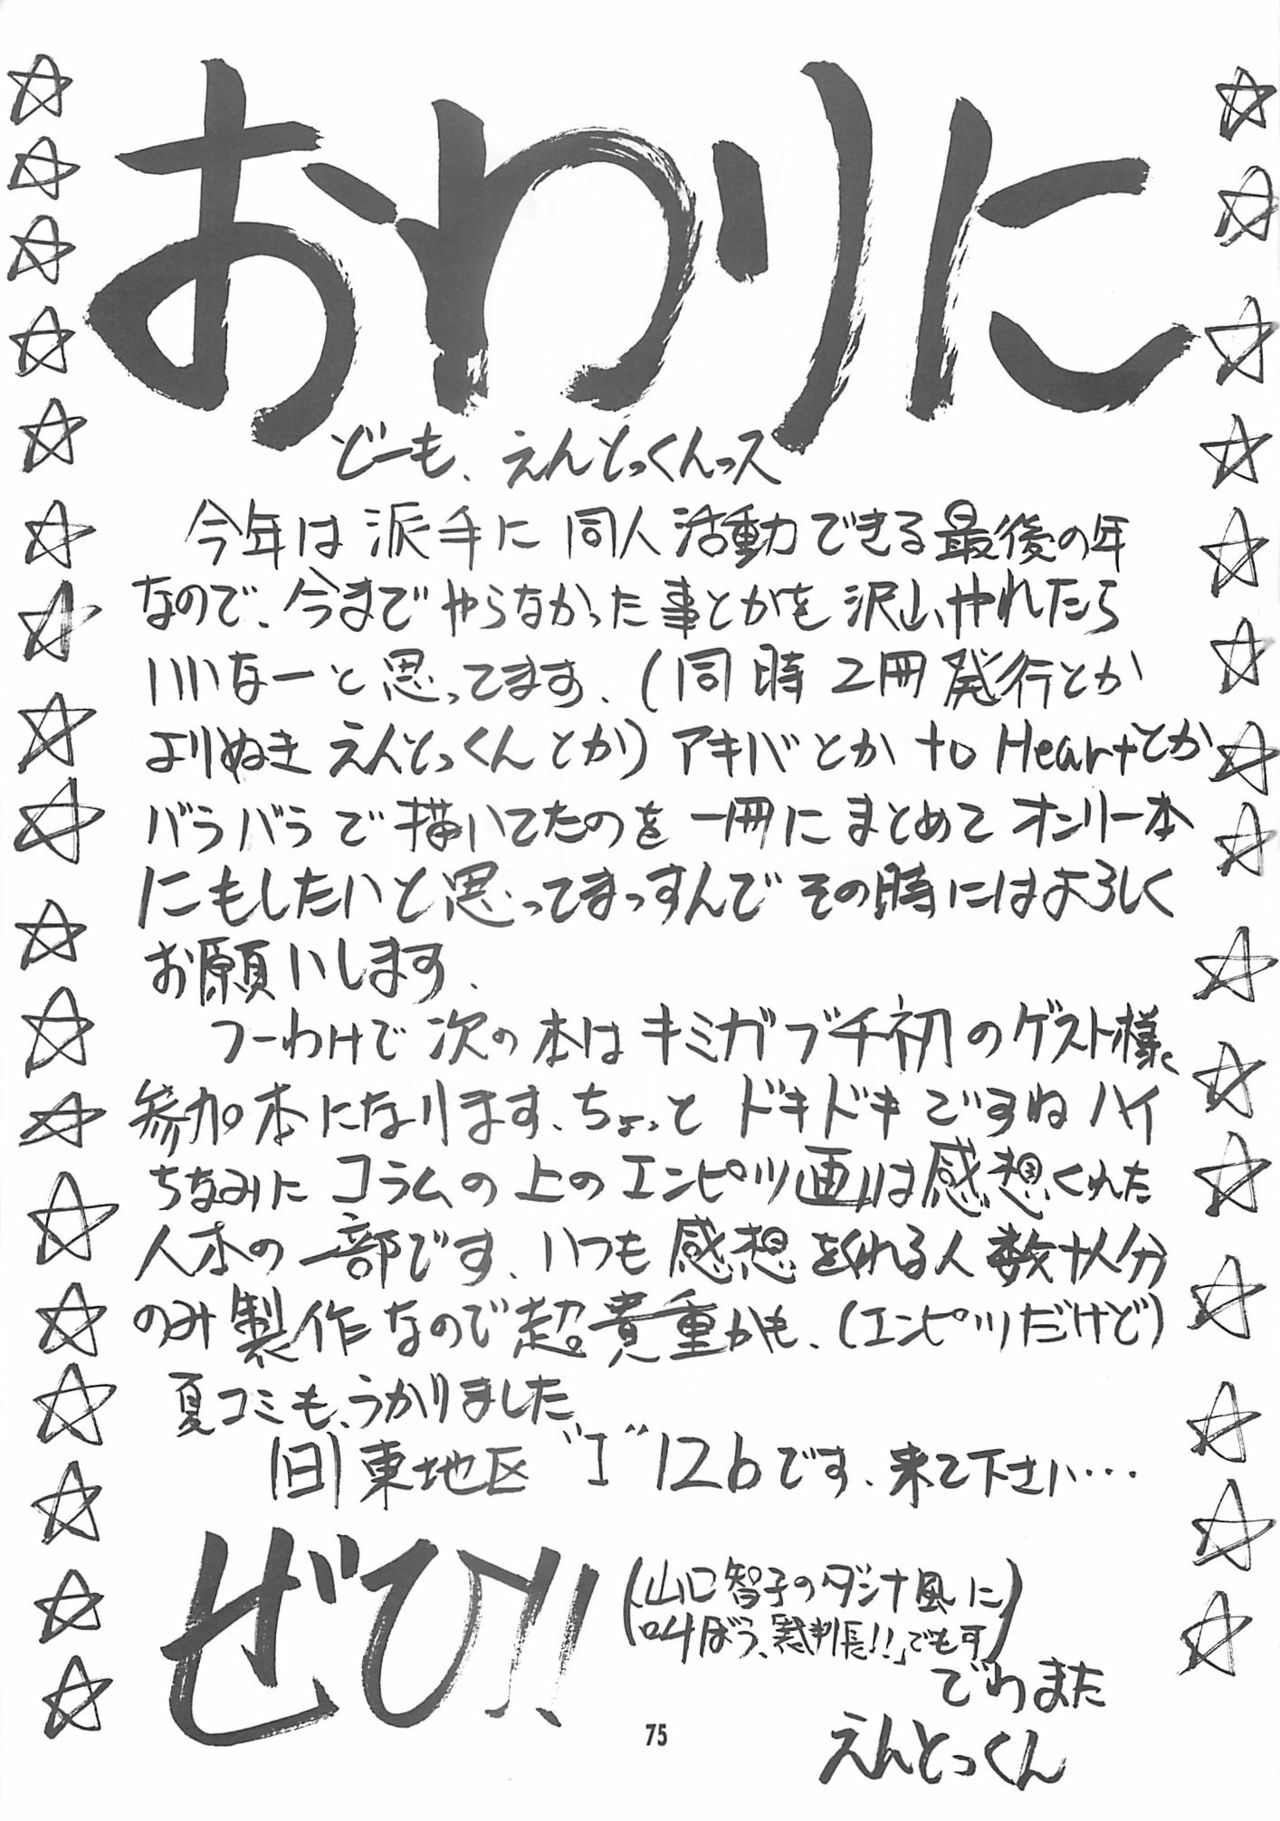 おわりに
どーも、えんとっくんっス
今年は派手に同人活動できる最後の年
なので、今までやらなかった事とかを沢山、やれたら
いいなーと思ってます、(同時2冊発行とか
よりぬきえんとっくんとか)アキバとかto Heartとか
バラバラで描いてたのを一冊にまとめてオンリー本
にもしたいと思ってまっすんでその時にはよろしく
お願いします、
つーわけで次の本はキミガブチ初のゲスト様、
参加本になります、ちょっとドキドキですねハイ
ちなみにコラムの上のエンピツ画は感想くれた
人本の一部です、いつも感想をくれる人数十人分
のみ製作なので超貴重かも、(エンピツだけど)
夏コミも、うかりました、
(日)東地区"I"12bです、来て下さい…
ぜひ!!
(山口智子のダンナ風に
叫ぼう、裁判長!!」でもす)
でわまた
えんとっくん
75